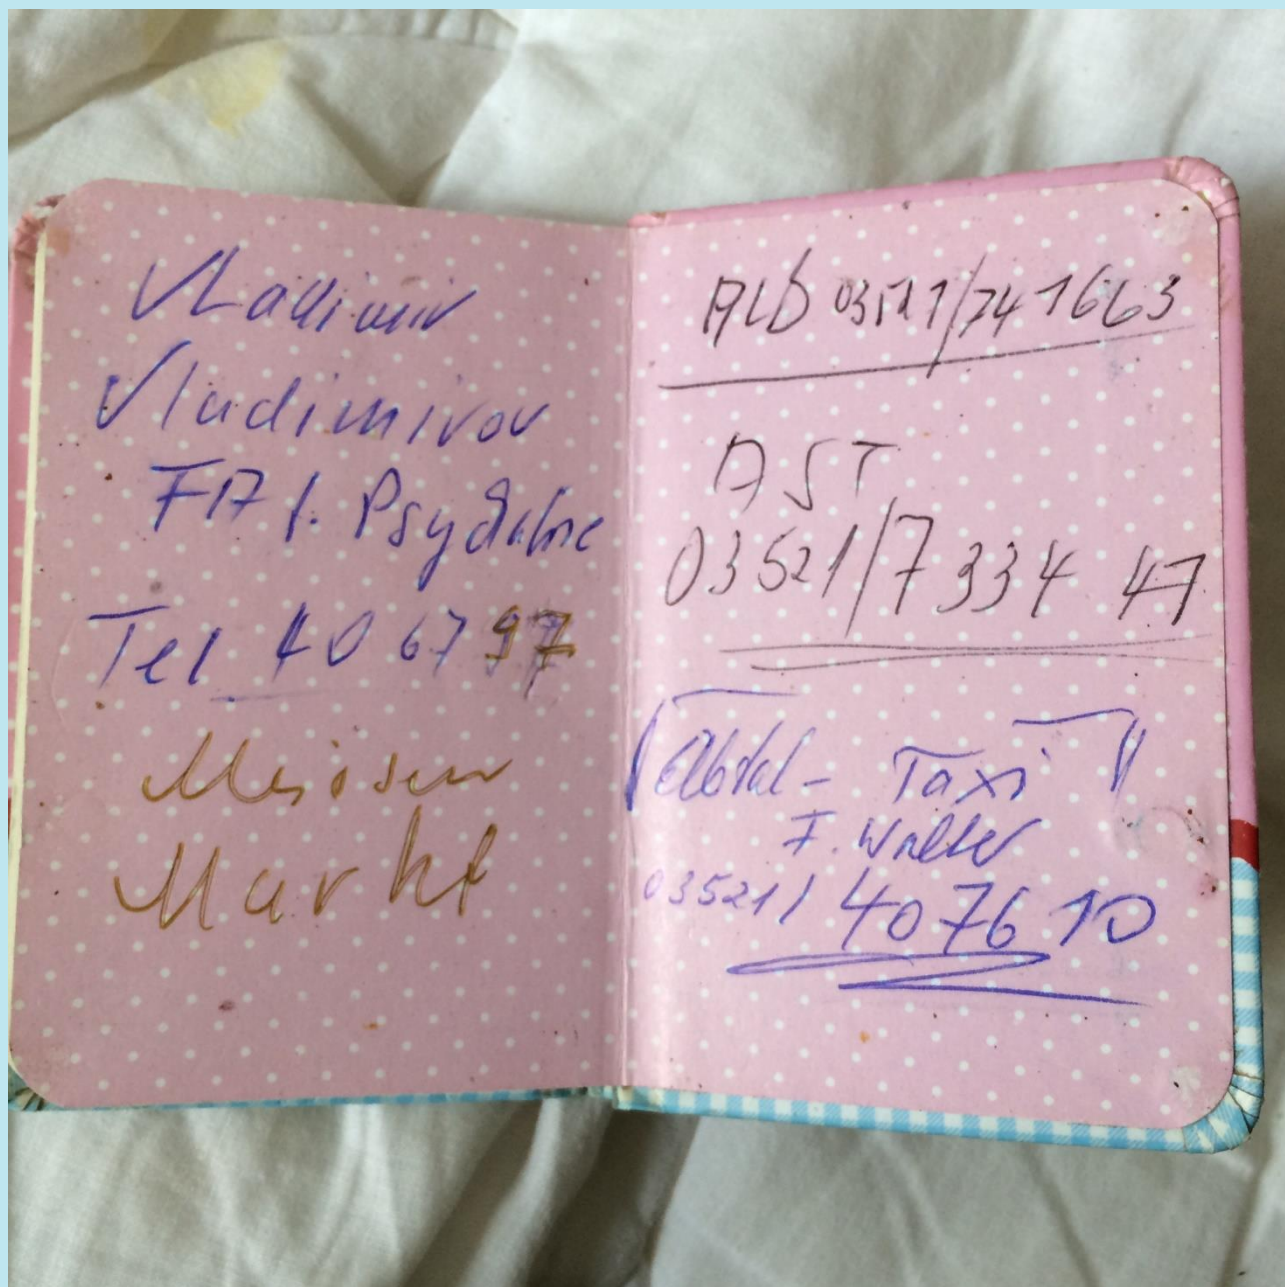 Vladimir
Vladimirov
FA f. Psychiatrie
Tel 40 67 97
Meissen
Markt
ALD 03521/741663
AST
03521/7 334 47
Elbtal- Taxi
F. Walter
03521/ 407610